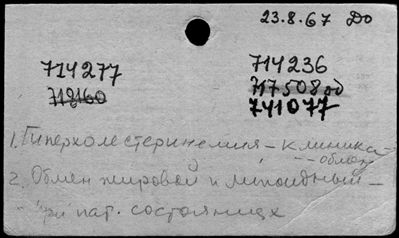 23.8.67 До
714277 714236
719160 717508од
741077
1. Гиперхолестеринемия - клиника
- обмен
2. Обмен жировой и липоидный -
- при пат. состояниях